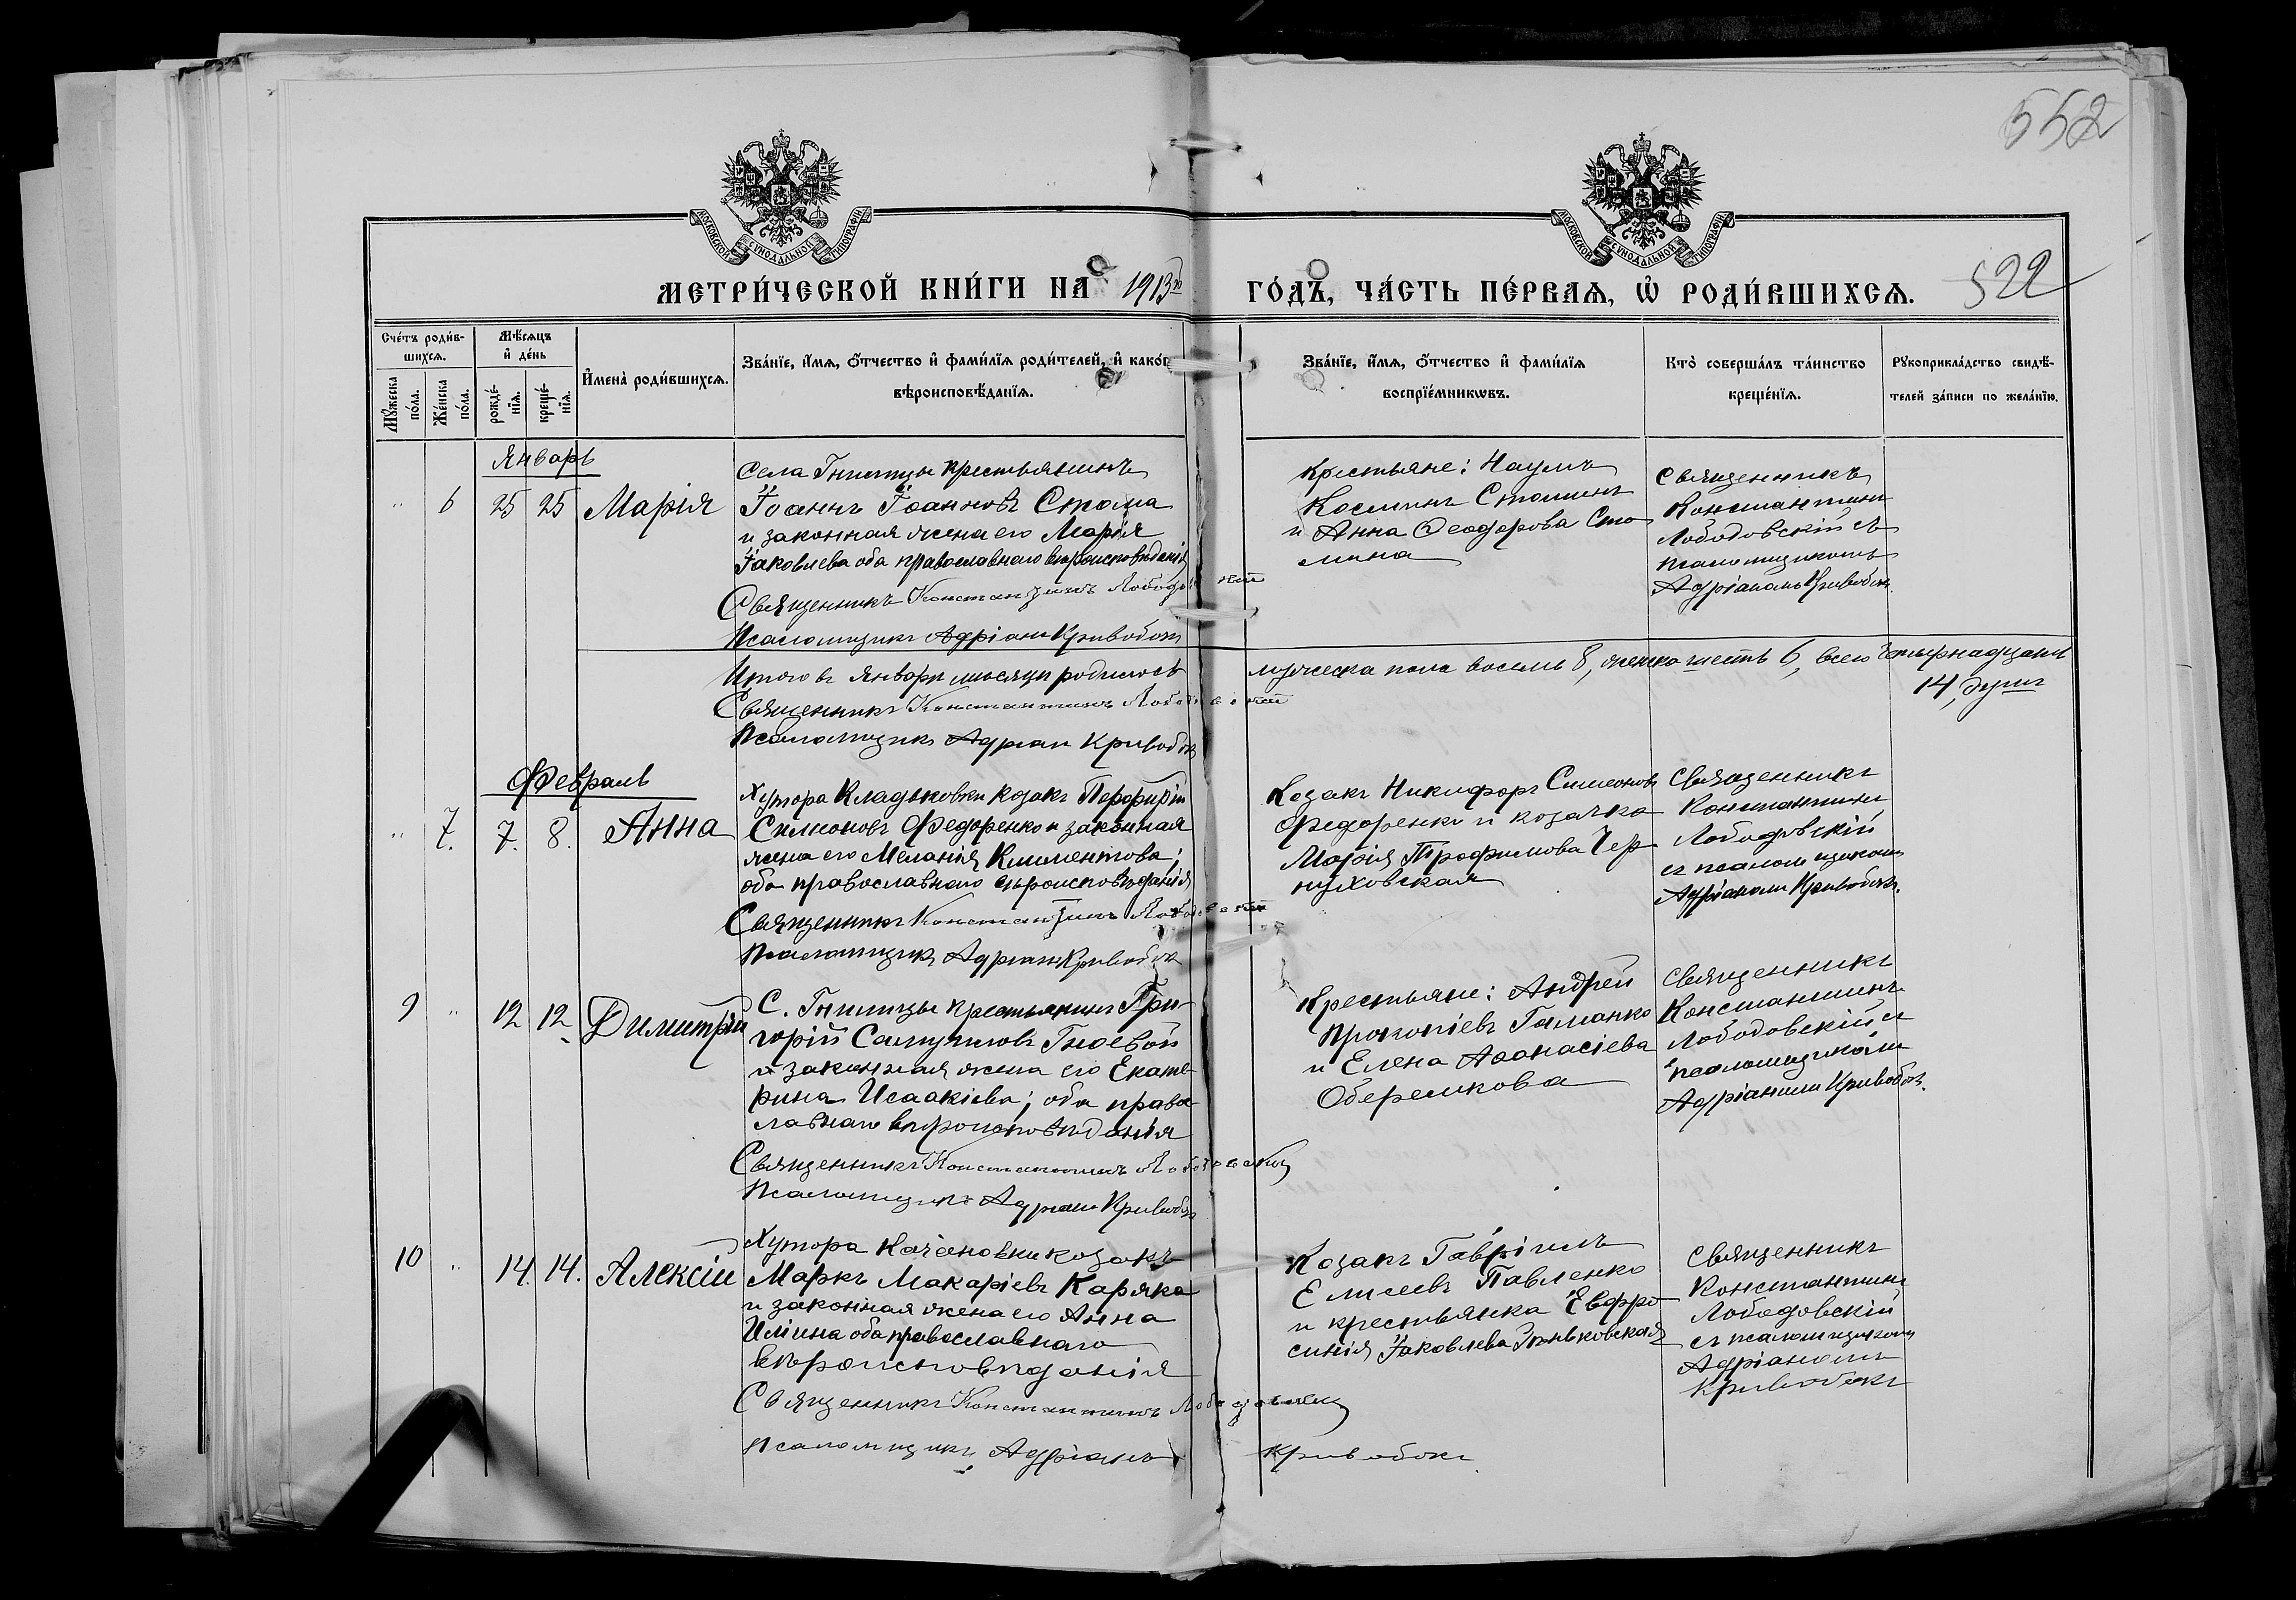 552
МОСКОВСКОЙ СѴНОДАЛЬНОЙ ТИПОГРАФІИ
МОСКОВСКОЙ СѴНОДАЛЬНОЙ ТИПОГРАФІИ
МЕТРИ́ЧЕСКОЙ КНИ́ГИ НА 1913й ГО́ДЪ, ЧА́СТЬ ПЕ́РВАѦ, Ѡ҆ РОДИ́ВШИХСѦ. 522
Сче́тъ роди́в-
шихсѧ.
Мꙋ́жеска по́ла.
Же́нска по́ла.
Мѣ́сѧцъ
и҆ де́нь
рожде́-
нїѧ.
креще́-
нїѧ.
И҆мена̀ роди́вшихсѧ.
Зва́нїе, и҆́мѧ, ѻ҆́тчество и҆ фами́лїѧ роди́телей, и҆ како́гѡ
вѣроисповѣ́данїѧ.
Зва́нїе, и҆́мѧ, ѻ҆́тчество и҆ фами́лїѧ
воспрїе́мникѡвъ.
Кто̀ соверша́лъ та́инство
креще́нїѧ.
Рꙋкоприкла́дство свидѣ́-
телей за́писи по жела́нїю.
Январь
" 6 25 25 Марія
Села Гнилицы крестьянинъ
Іоаннъ Іоанновъ Стома
и законная жена его Марія
Іаковлева оба православнаго вѣроисповѣданія
Священникъ Константинъ Лободовскій
Псаломщикъ Адріанъ Кривобокъ
Крестьяне: Наумъ
Косминъ Стоминъ
и Анна Ѳеодорова Сто
мина
Священникъ
Константинъ
Лободовскій съ
псаломщикомъ
Адріаномъ Кривобок.
Итого въ январѣ мѣсяцѣ родилось мужеска пола восемь 8, женска шесть 6, всего четырнадцать
14, душъ
Священникъ Константинъ Лободовскій
Псаломщикъ Адріан Кривобок
Февраль
" 7. 7. 8. Анна
Хутора Кладьковки козакъ Порфирій
Симеоновъ Федоренко и законная
жена его Меланія Климентова;
оба православнаго вѣроисповѣданія
Священникъ Константинъ Лободовскій
Псаломщикъ Адріанъ Кривобок
Козакъ Никифоръ Симеоновъ
Федоренко и козачка
Марія Трофимова Чер-
нуховская
Священникъ
Константинъ
Лободовскій
съ псаломщикомъ
Адріаномъ Кривобок.
9 " 12 12 Димитрій
С. Гнилицы крестьянинъ Гри-
горій Самуиловъ Гноевой
и законная жена его Екате-
рина Исаакіева; оба право-
славнаго вѣроисповѣданія
Священникъ Константинъ Лободовскій
Псаломщикъ Адріанъ Кривобок
Крестьяне: Андрей
Прокопіевъ Гаманко
и Елена Аѳанасіева
Оберемкова
Священникъ
Константинъ
Лободовскій съ
псаломщикомъ
Адріаномъ Кривобок.
10 " 14. 14. Алексій
Хутора Качановки козакъ
Маркъ Макаріевъ Каряка
и законная жена его Анна
Иліина оба православнаго
вѣроисповѣданія
Священникъ Константинъ Лободовскій
Псаломщикъ Адріанъ Кривобокъ
Козакъ Гавріилъ
Елисеевъ Павленко
и крестьянка Евфро-
синія Іаковлева Зѣньковская
Священникъ
Константинъ
Лободовскій
съ псаломщикомъ
Адріаномъ
Кривобокъ